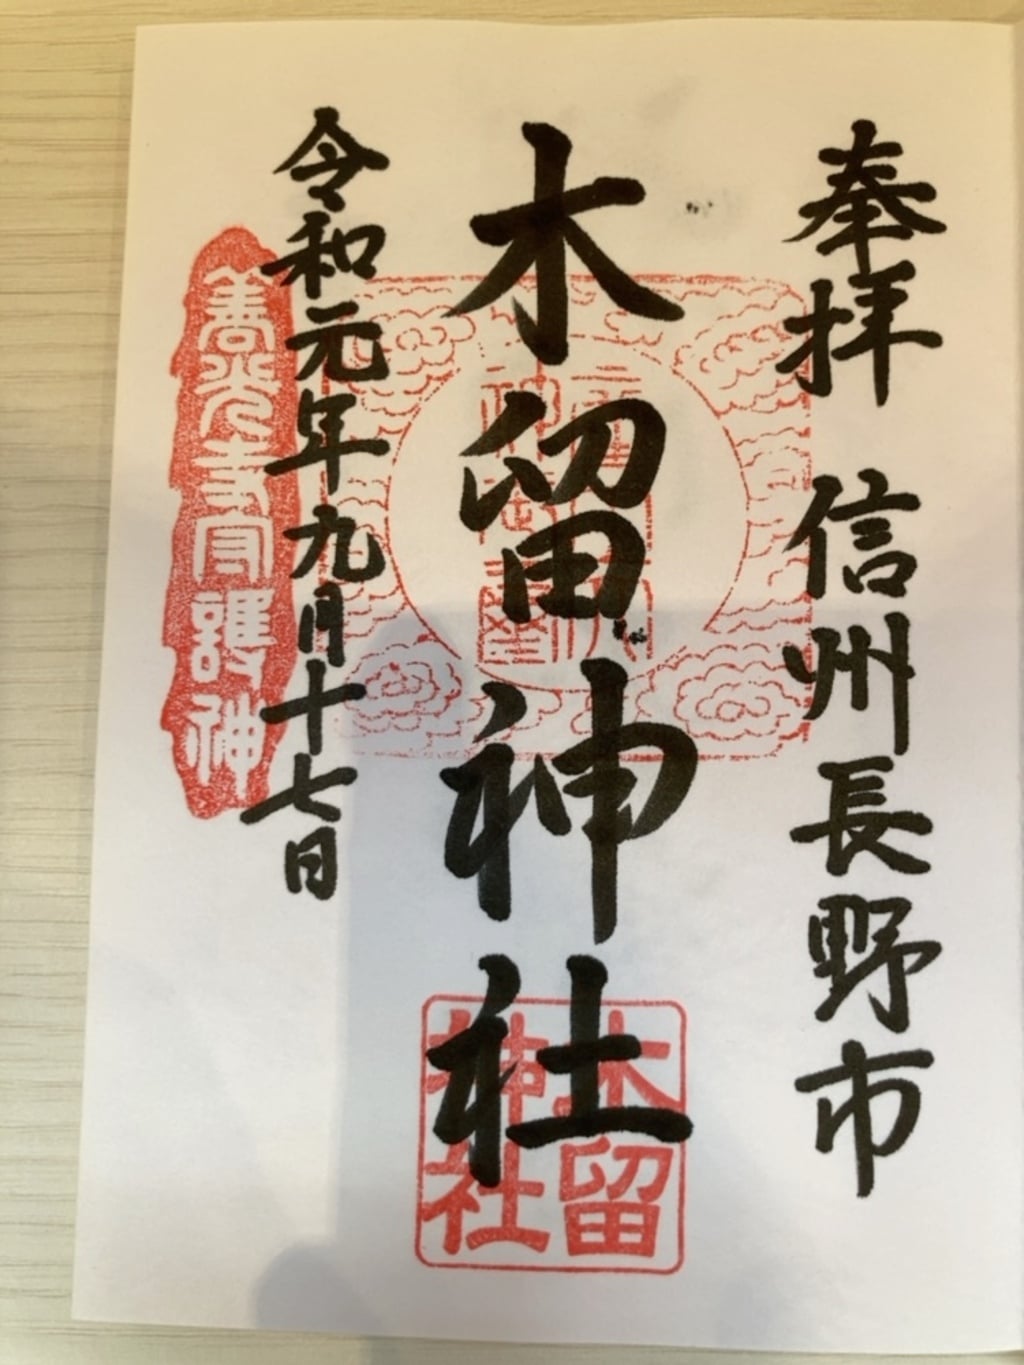 奉拝 信州長野市
木留神社
令和元年九月十七日
善光寺守護神
木留
神社